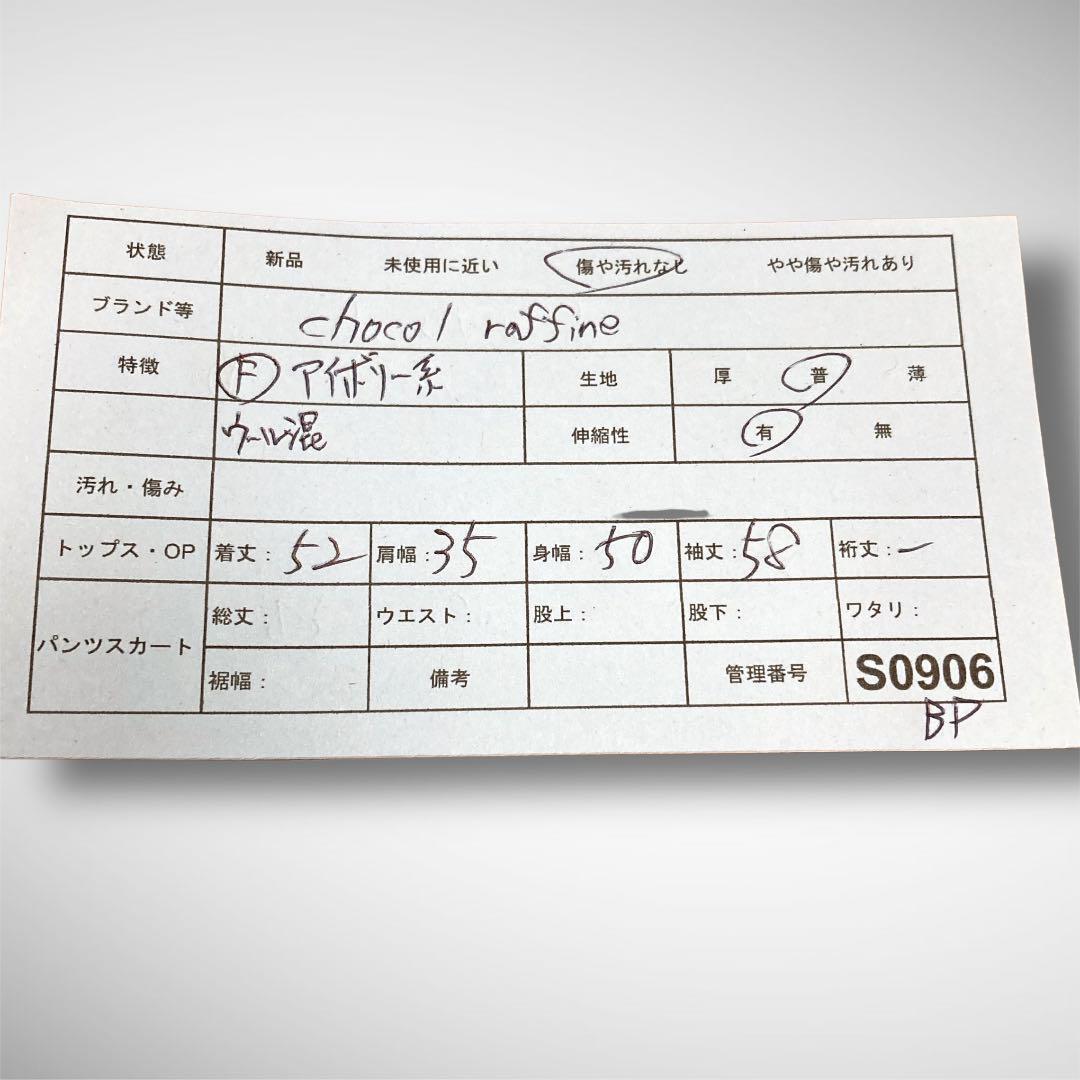 状態 新品 未使用に近い 傷や汚れなし やや傷や汚れあり
ブランド等 chocol raffine
特徴 F アイボリー系 生地 厚 普 薄
ウール混 伸縮性 有 無
汚れ・傷み
トップス・OP 着丈：52 肩幅：35 身幅：50 袖丈：58 裄丈：ー
パンツスカート 総丈： ウエスト： 股上： 股下： ワタリ：
裾幅： 備考 管理番号 S0906
BP